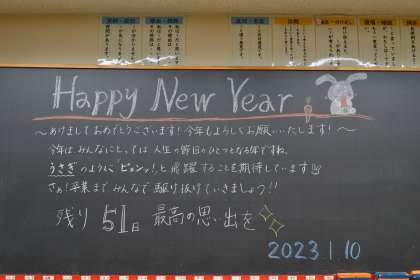 Happy New Year
～あけましておめでとうございます！今年もよろしくお願いいたします！～
今年は、みんなにとっては人生の節目のひとつとなる年ですね。
うさぎのように「ピョンッ！」と飛躍することを期待しています
さぁ！卒業までみんなで駆け抜けていきましょう！！
残り 51日 最高の思い出を
2023 1.10